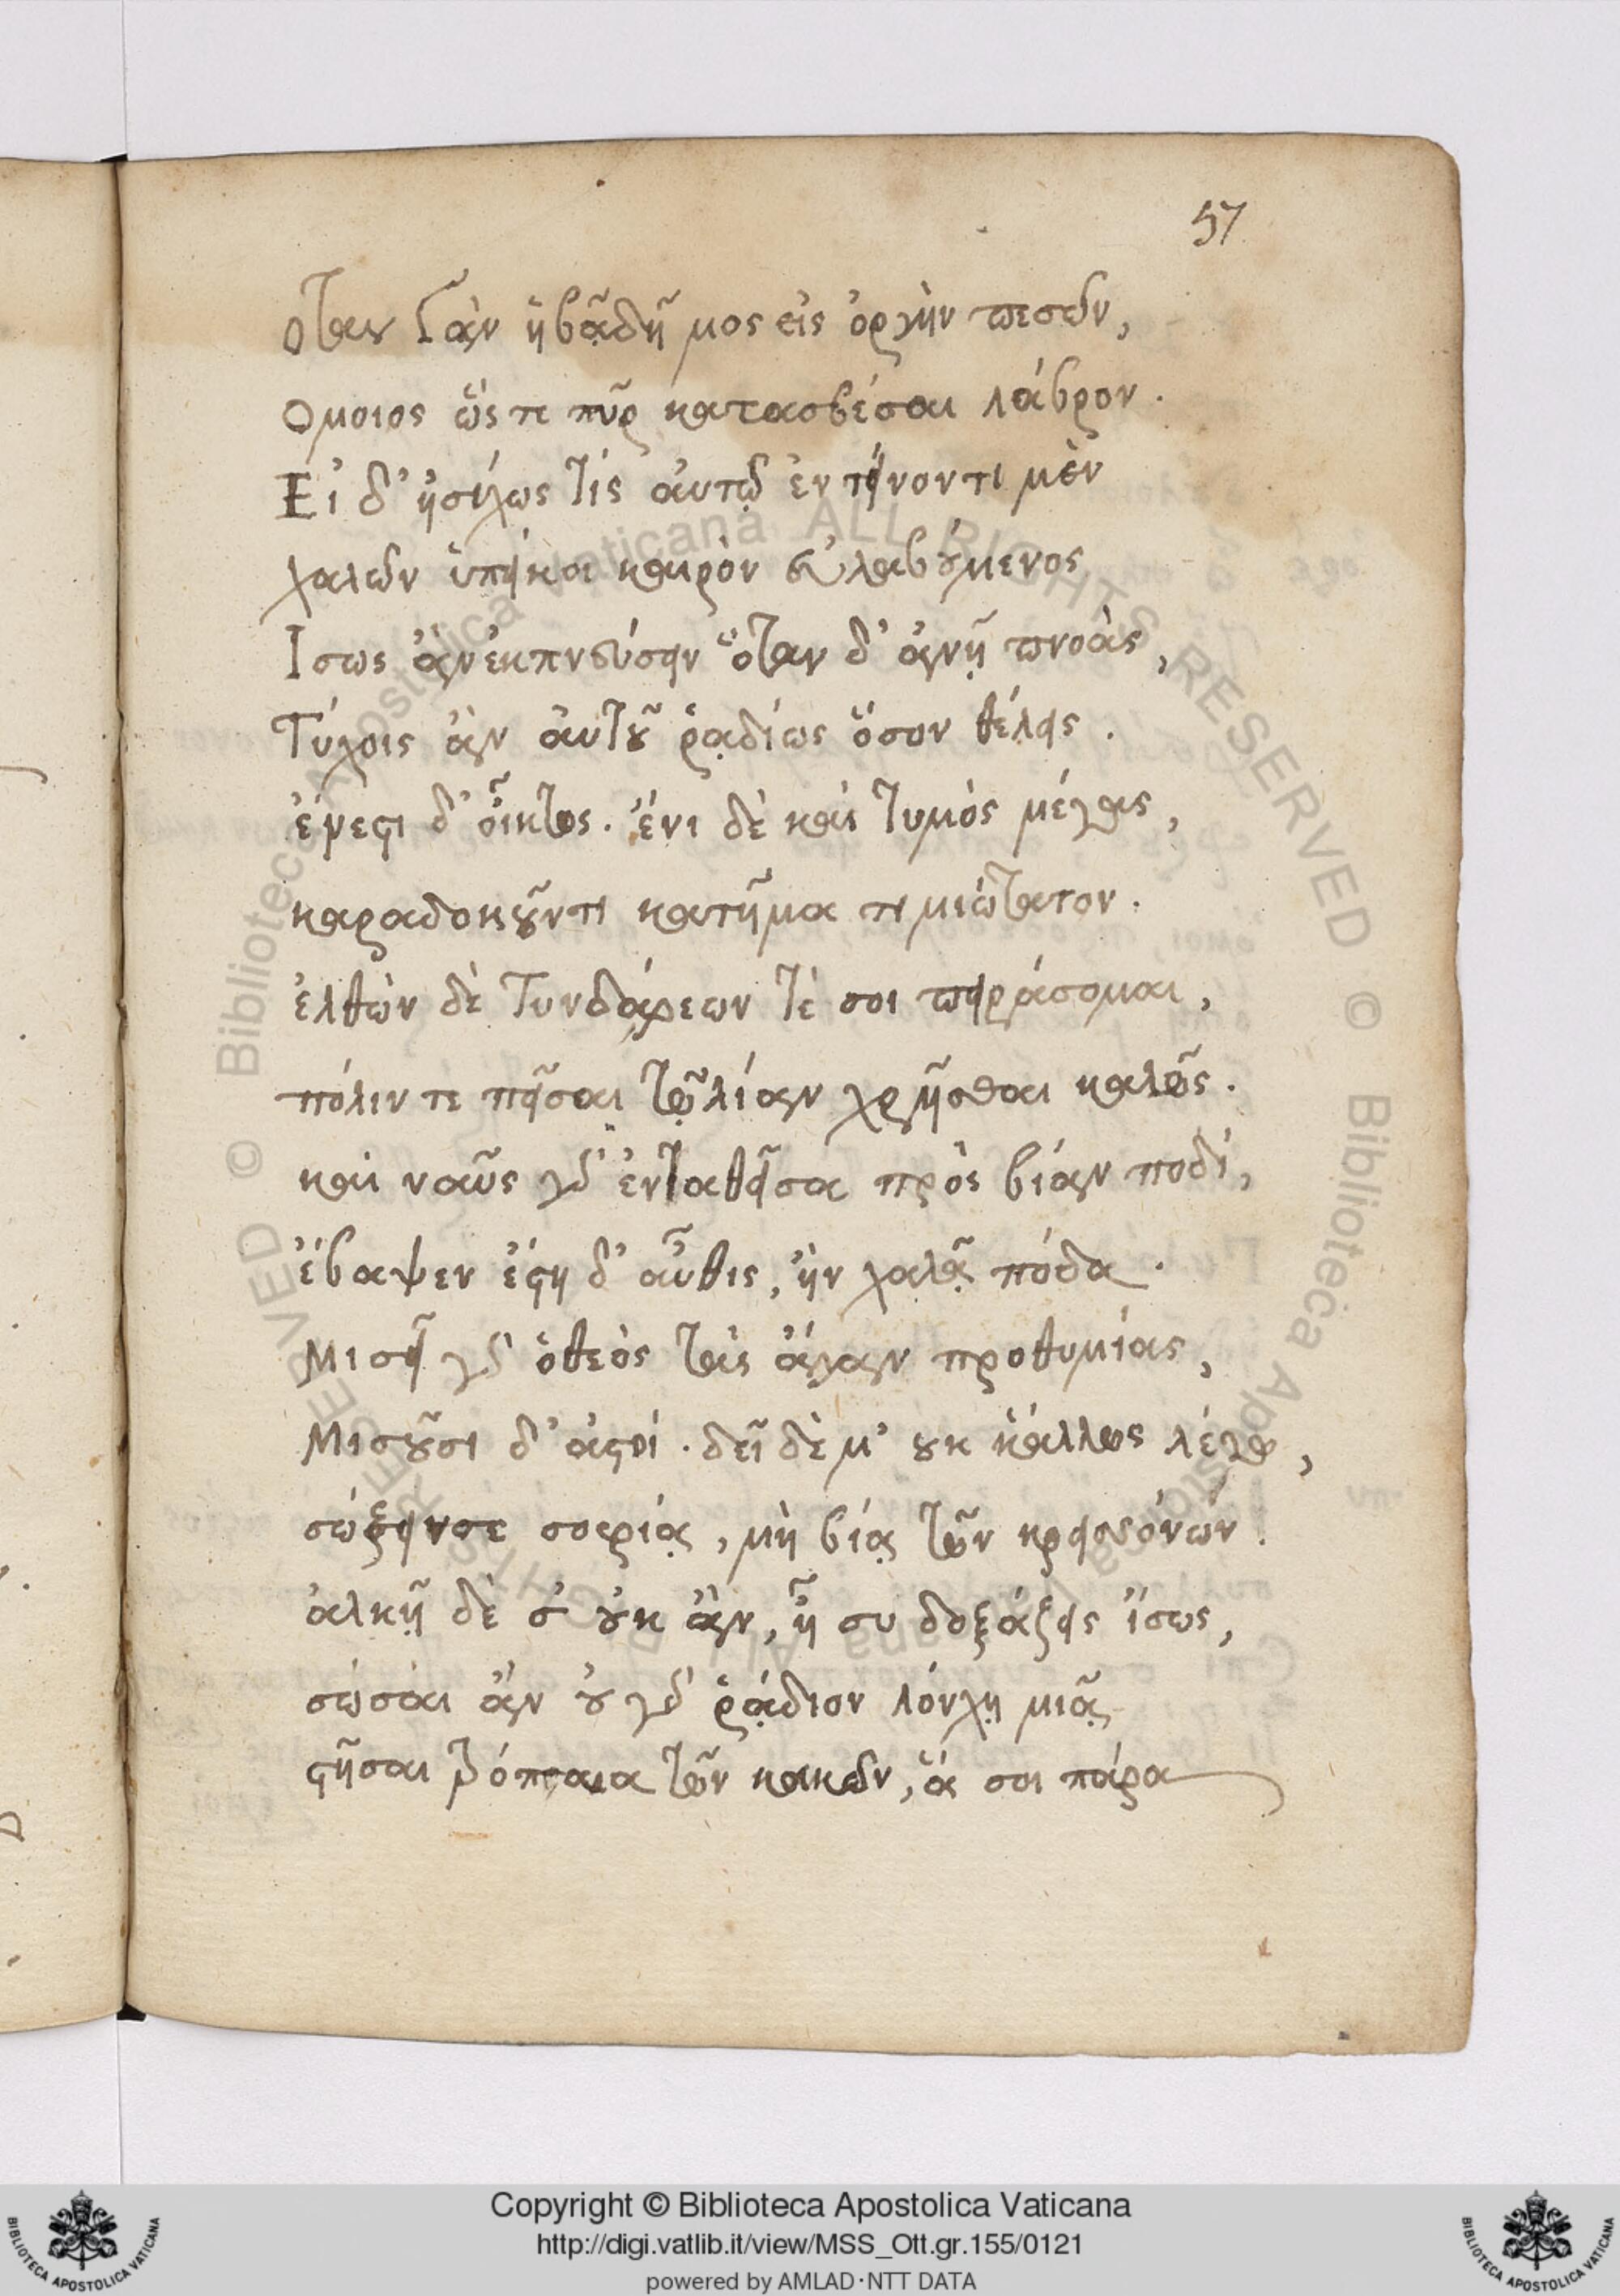 57
Ὅταν γὰρ ἡβᾷ δῆμος εἰς ὀργὴν πεσὼν,
Ομοιος ὥς τε πῦρ κατασβέσαι λάβρον.
Εἰ δ' ἡσύχως τίς αὐτῷ ἐντείνοντι μὲν
χαλῶν ὑπείκοι καιρὸν εὐλαβούμενος
Ισως ἂν ἐκπνεύσειν ὅταν δ' ἀνῇ πνοὰς,
Τύχοις ἂν αὐτοῦ ῥᾳδίως ὅσον θέλεις.
ἔνεστι δ' οἶκτος. ἔνι δὲ καὶ θυμὸς μέγας,
καραδοκοῦντι κατῆμα τιμιώτατον.
ἐλθὼν δὲ Τυνδάρεων τέ σοι πειράσομαι,
πόλιν τε πεῖσαι τῷ λίαν χρῆσθαι καλῶς.
καὶ ναῦς γὰρ ἐνταθεῖσα πρὸς βίαν ποδὶ,
ἔβαψεν ἔστη δ' αὖθις, ἢν χαλᾷ πόδα.
Μισεῖ γὰρ ὁ θεὸς τὰς ἄγαν προθυμίας,
Μισοῦσι δ' ἀστοί. δεῖ δὲ μ' οὐκ ἄλλως λέγω,
σώζειν σε σοφίᾳ, μὴ βίᾳ τῶν κρεισσόνων.
ἀλκῇ δὲ σ' οὐκ ἂν, ᾗ συ δοξάζεις ἴσως,
σώσαι ἂν οὐ γὰρ ῥᾴδιον λόνχῃ μιᾷ
στῆσαι τρόπαια τῶν κακῶν, ἅ σοι πάρα
Copyright © Biblioteca Apostolica Vaticana
http://digi.vatlib.it/view/MSS_Ott.gr.155/0121
powered by AMLAD·NTT DATA